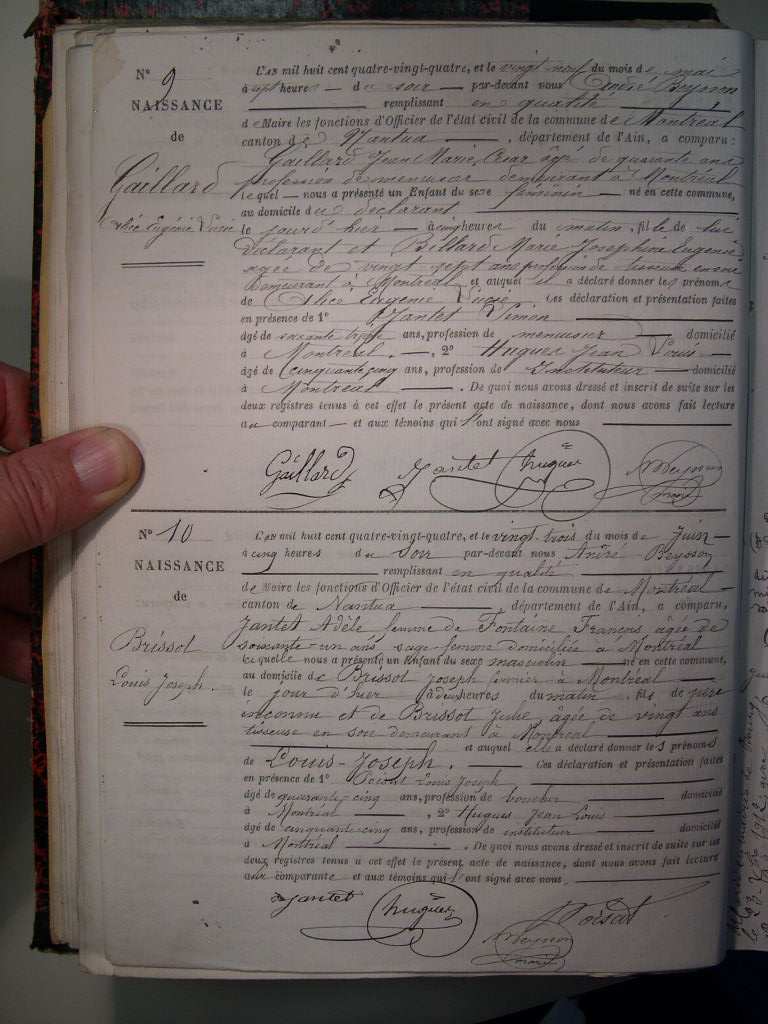 N° 9
NAISSANCE
de
Gaillard
Alice Eugénie Lucie
L'AN mil huit cent quatre-vingt-quatre, et le vingt neuf du mois de mai
à sept heures du soir par-devant nous André Beysson
remplissant en qualité
de Maire les fonctions d'Officier de l'état civil de la commune de Montréal
canton de Nantua, département de l'Ain, a comparu :
Gaillard Jean Marie, César âgé de quarante ans
profession de menuisier demeurant à Montréal
lequel nous a présenté un Enfant du sexe féminin né en cette commune,
au domicile du déclarant
le jour d'hier à cinq heures du matin, fille de lui
déclarant et Billard Marie Joséphine Eugénie
agée de vingt-sept ans profession de
demeurant à Montréal et auquel il a déclaré donner les prénoms
de Alice Eugénie Lucie Ces déclaration et présentation faites
en présence de 1° Jantet Simon
âgé de soixante ans, profession de menuisier domicilié
à Montréal, 2° Hugues Jean Louis
âgé de cinquante cinq ans, profession de Instituteur domicilié
à Montréal. De quoi nous avons dressé et inscrit de suite sur les
deux registres tenus à cet effet le présent acte de naissance, dont nous avons fait lecture
au comparant et aux témoins qui l'ont signé avec nous
Gaillard Jantet hugues ABeysson
maire
N° 10
NAISSANCE
de
Brissot
Louis Joseph.
L'AN mil huit cent quatre-vingt-quatre, et le vingt-trois du mois de Juin
à cinq heures du soir par-devant nous André Beysson
remplissant en qualité
de Maire les fonctions d'Officier de l'état civil de la commune de Montréal
canton de Nantua, département de l'Ain, a comparu,
Jantet Adèle femme de Fontaine François âgée de
soixante-un ans sage-femme domiciliée à Montréal
laquelle nous a présenté un Enfant du sexe masculin né en cette commune,
au domicile de Brissot Joseph à Montréal
le jour d'hier à deux heures du matin fils de père
inconnu et de Brissot Julie, âgée de vingt ans
tisseuse en soie demeurant à Montréal
et auquel elle a déclaré donner les prénoms
de Louis-Joseph. Ces déclaration et présentation faites
en présence de 1° Louis Joseph
âgé de quarante-cinq ans, profession de boucher domicilié
à Montréal, 2° Hugues Jean Louis
âgé de cinquante cinq ans, profession de instituteur domicilié
à Montréal. De quoi nous avons dressé et inscrit de suite sur les
deux registres tenus à cet effet le présent acte de naissance, dont nous avons fait lecture
à la comparante et aux témoins qui l'ont signé avec nous
Jantet hugues
ABeysson
maire